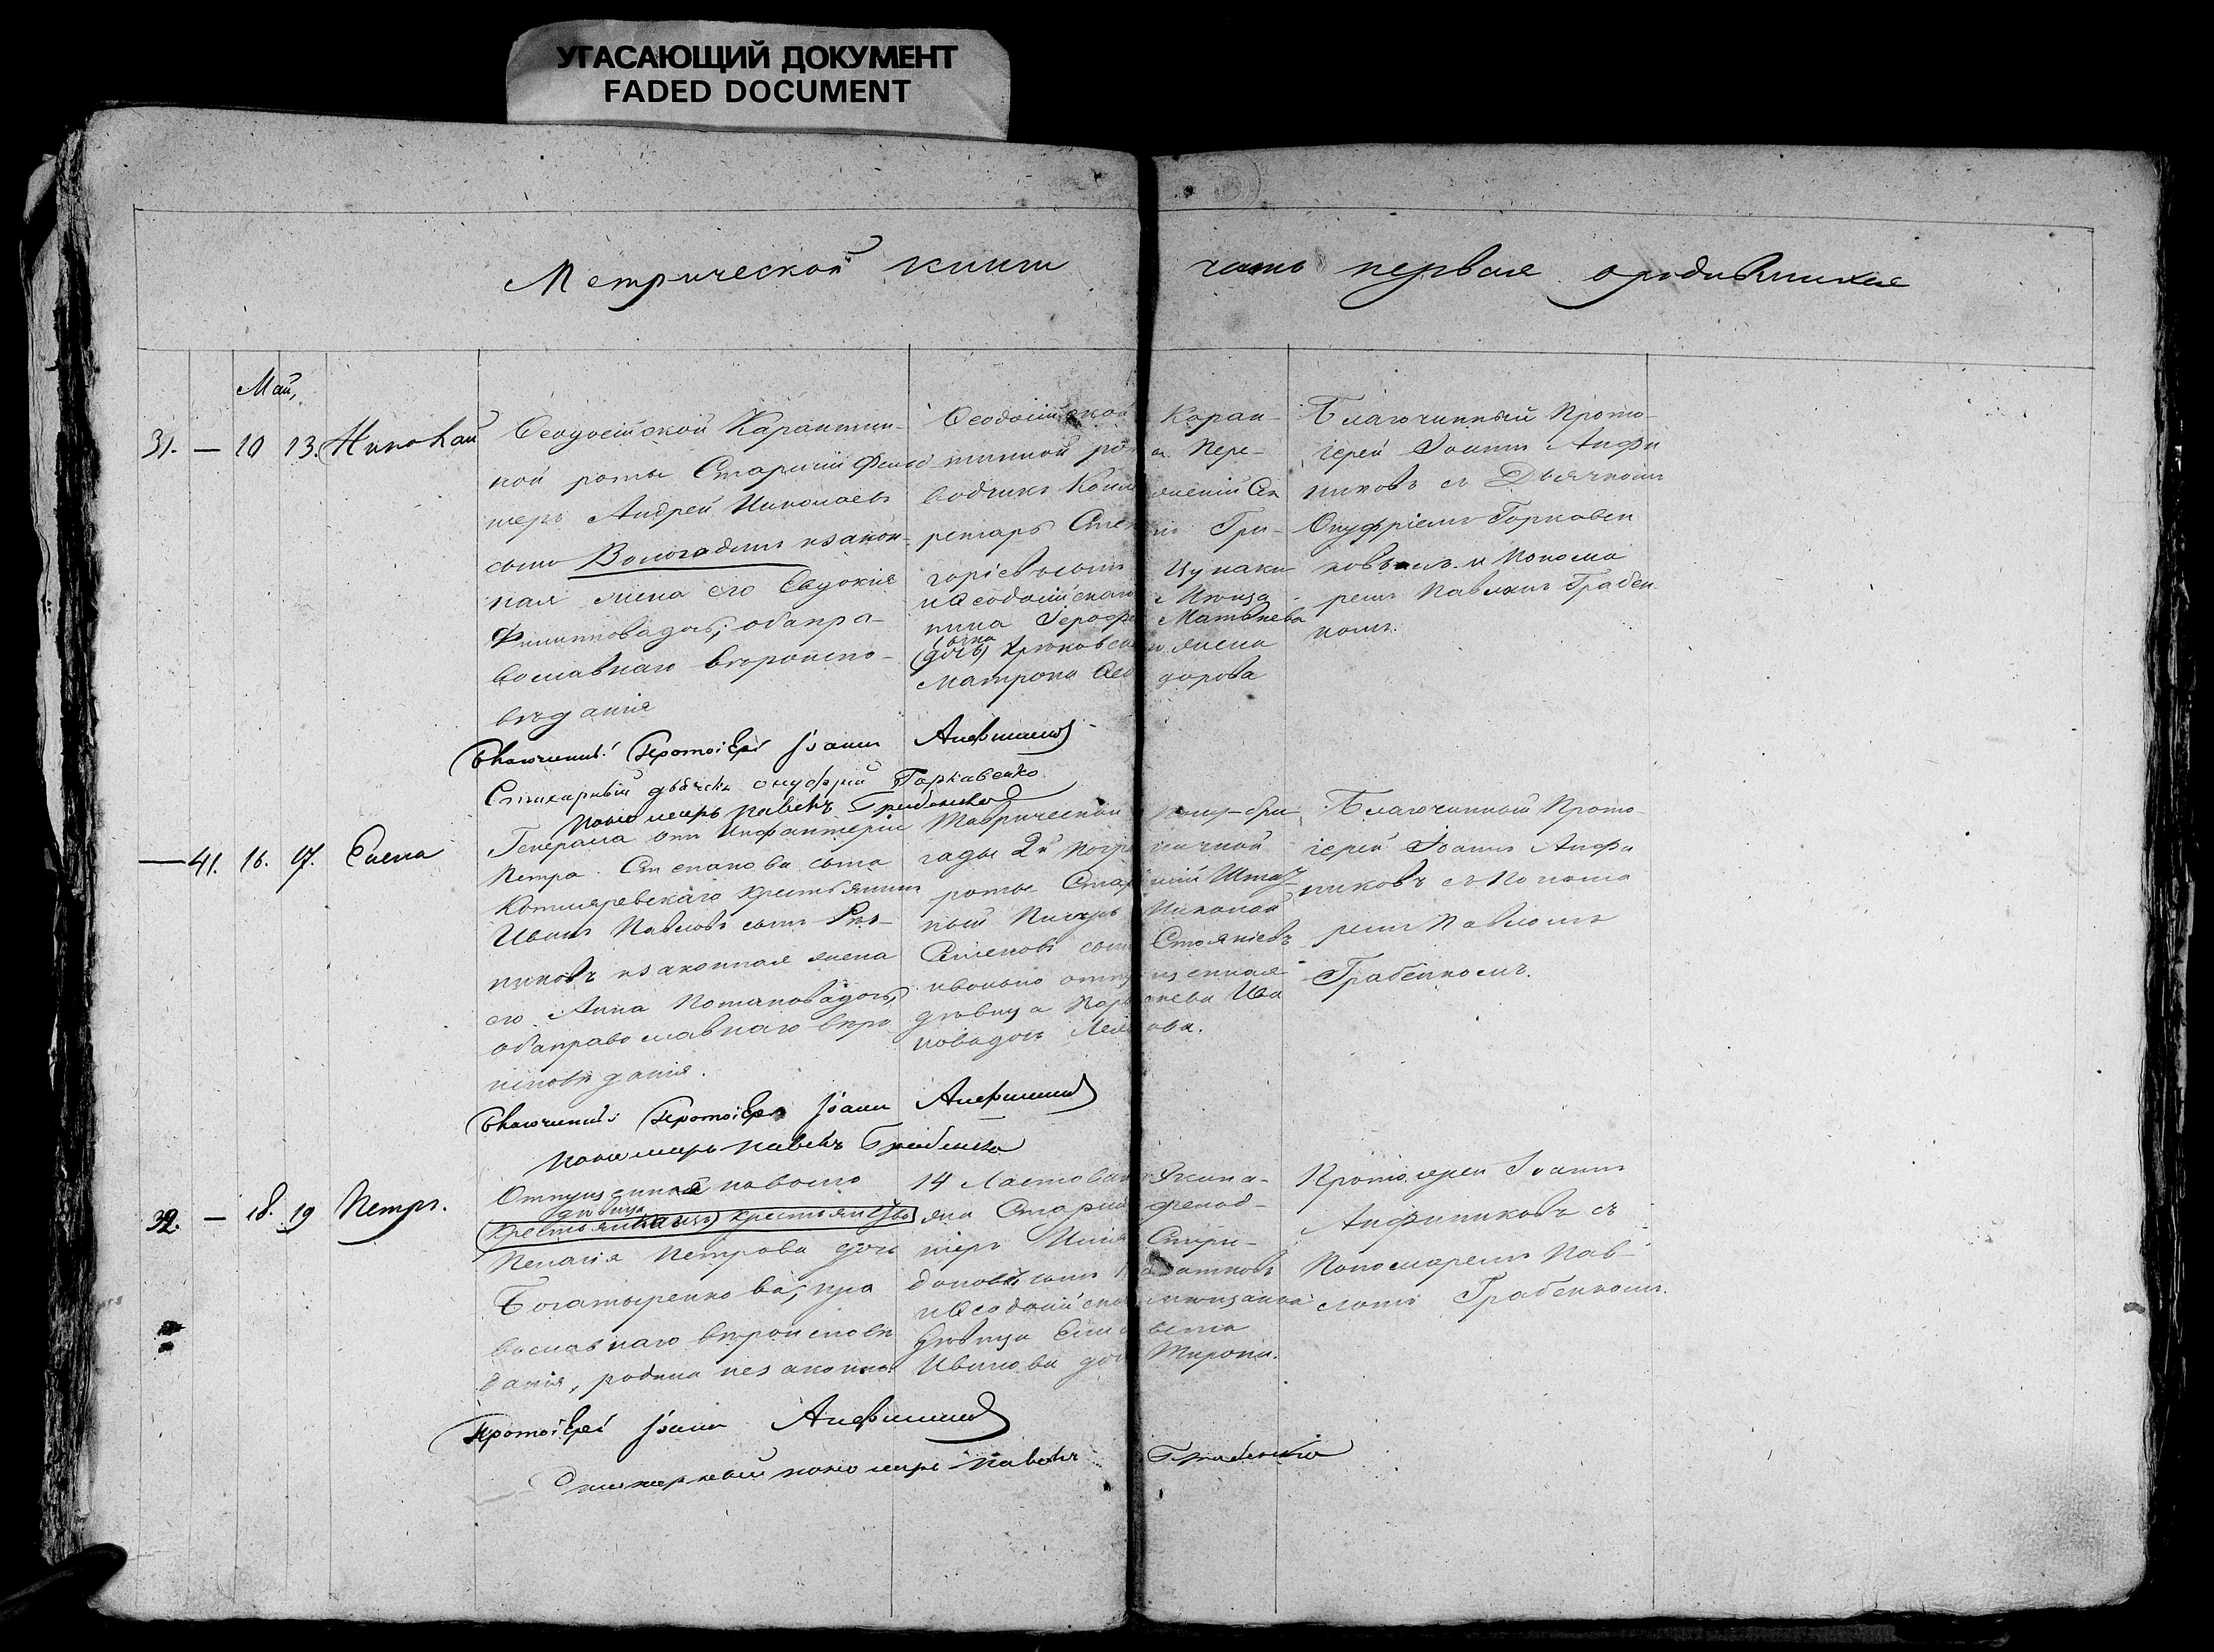 УГАСАЮЩИЙ ДОКУМЕНТ
FADED DOCUMENT
Метрической книги часть первая о родившихся
Май,
31. — 10 13. Николай
Ѳеодосійской Карантин-
ной роты Старшій Фельд
шеръ Андрей Николаевъ
сынъ Вологодинъ и закон-
ная жена его Евдокія
Филиппова дочь; оба пра-
вославнаго вѣроиспо-
вѣданія
Ѳеодосійской Каран-
тинной роты Пере-
водчикъ Коллежскій Сек
ретарь Степанъ Гри-
горіевъ сынъ
и Ѳеодосійскаго
Матвѣева
(дочь) Хрюкова жена
Матрона Ѳеодорова
Благочинный Прото-
іерей Іоаннъ Анфи
никовъ съ Дьячкомъ
Онуфріемъ Горковен
ковымъ и Понома
ремъ Павломъ Грабен
комъ.
Благочинный Протоіерей Іоаннъ Анфиниковъ
Стихарный дьячокъ Онуфрій Горкавенко
Пономарь Павелъ Грабенко
— 41. 16. 17. Елена
Генерала отъ Инфантеріи
Петра Степанова сына
Котляревскаго крестьянинъ
Иванъ Павловъ сынъ
никовъ и законная жена
его Анна Потапова дочь,
оба православнаго вѣро
исповѣданія.
Таврической полу-бри
гады 2й Погра ничной
роты Старшій
ный Писарь Николай
Семеновъ сынъ Стояновъ
и вольно отпущенная
дѣвица Ива
нова дочь
Благочинный Прото-
іерей Іоаннъ Анфи
никовъ съ Понома
ремъ Павломъ
Грабенкомъ.
Благочинный Протоіерей Іоаннъ Анфиниковъ
Пономарь Павелъ Грабенко
32. — 18. 19 Петръ.
Отпущенная на волю
дѣвица
Пелагія Петрова дочь
Богатыренкова, пра
вославнаго вѣроисповѣ
данія, родила незаконно.
14 Ластоваго Экипа-
жа Старшій фельд-
шеръ Спири-
доновъ сынъ
и Ѳеодосійская мѣщанка
дѣвица Елисавета
Иванова дочь Миропи.
Протоіерей Іоаннъ
Анфиниковъ съ
Пономаремъ Пав-
ломъ Грабенкомъ.
Протоіерей Іоаннъ Анфиниковъ
Стихарный пономарь Павелъ Грабенко